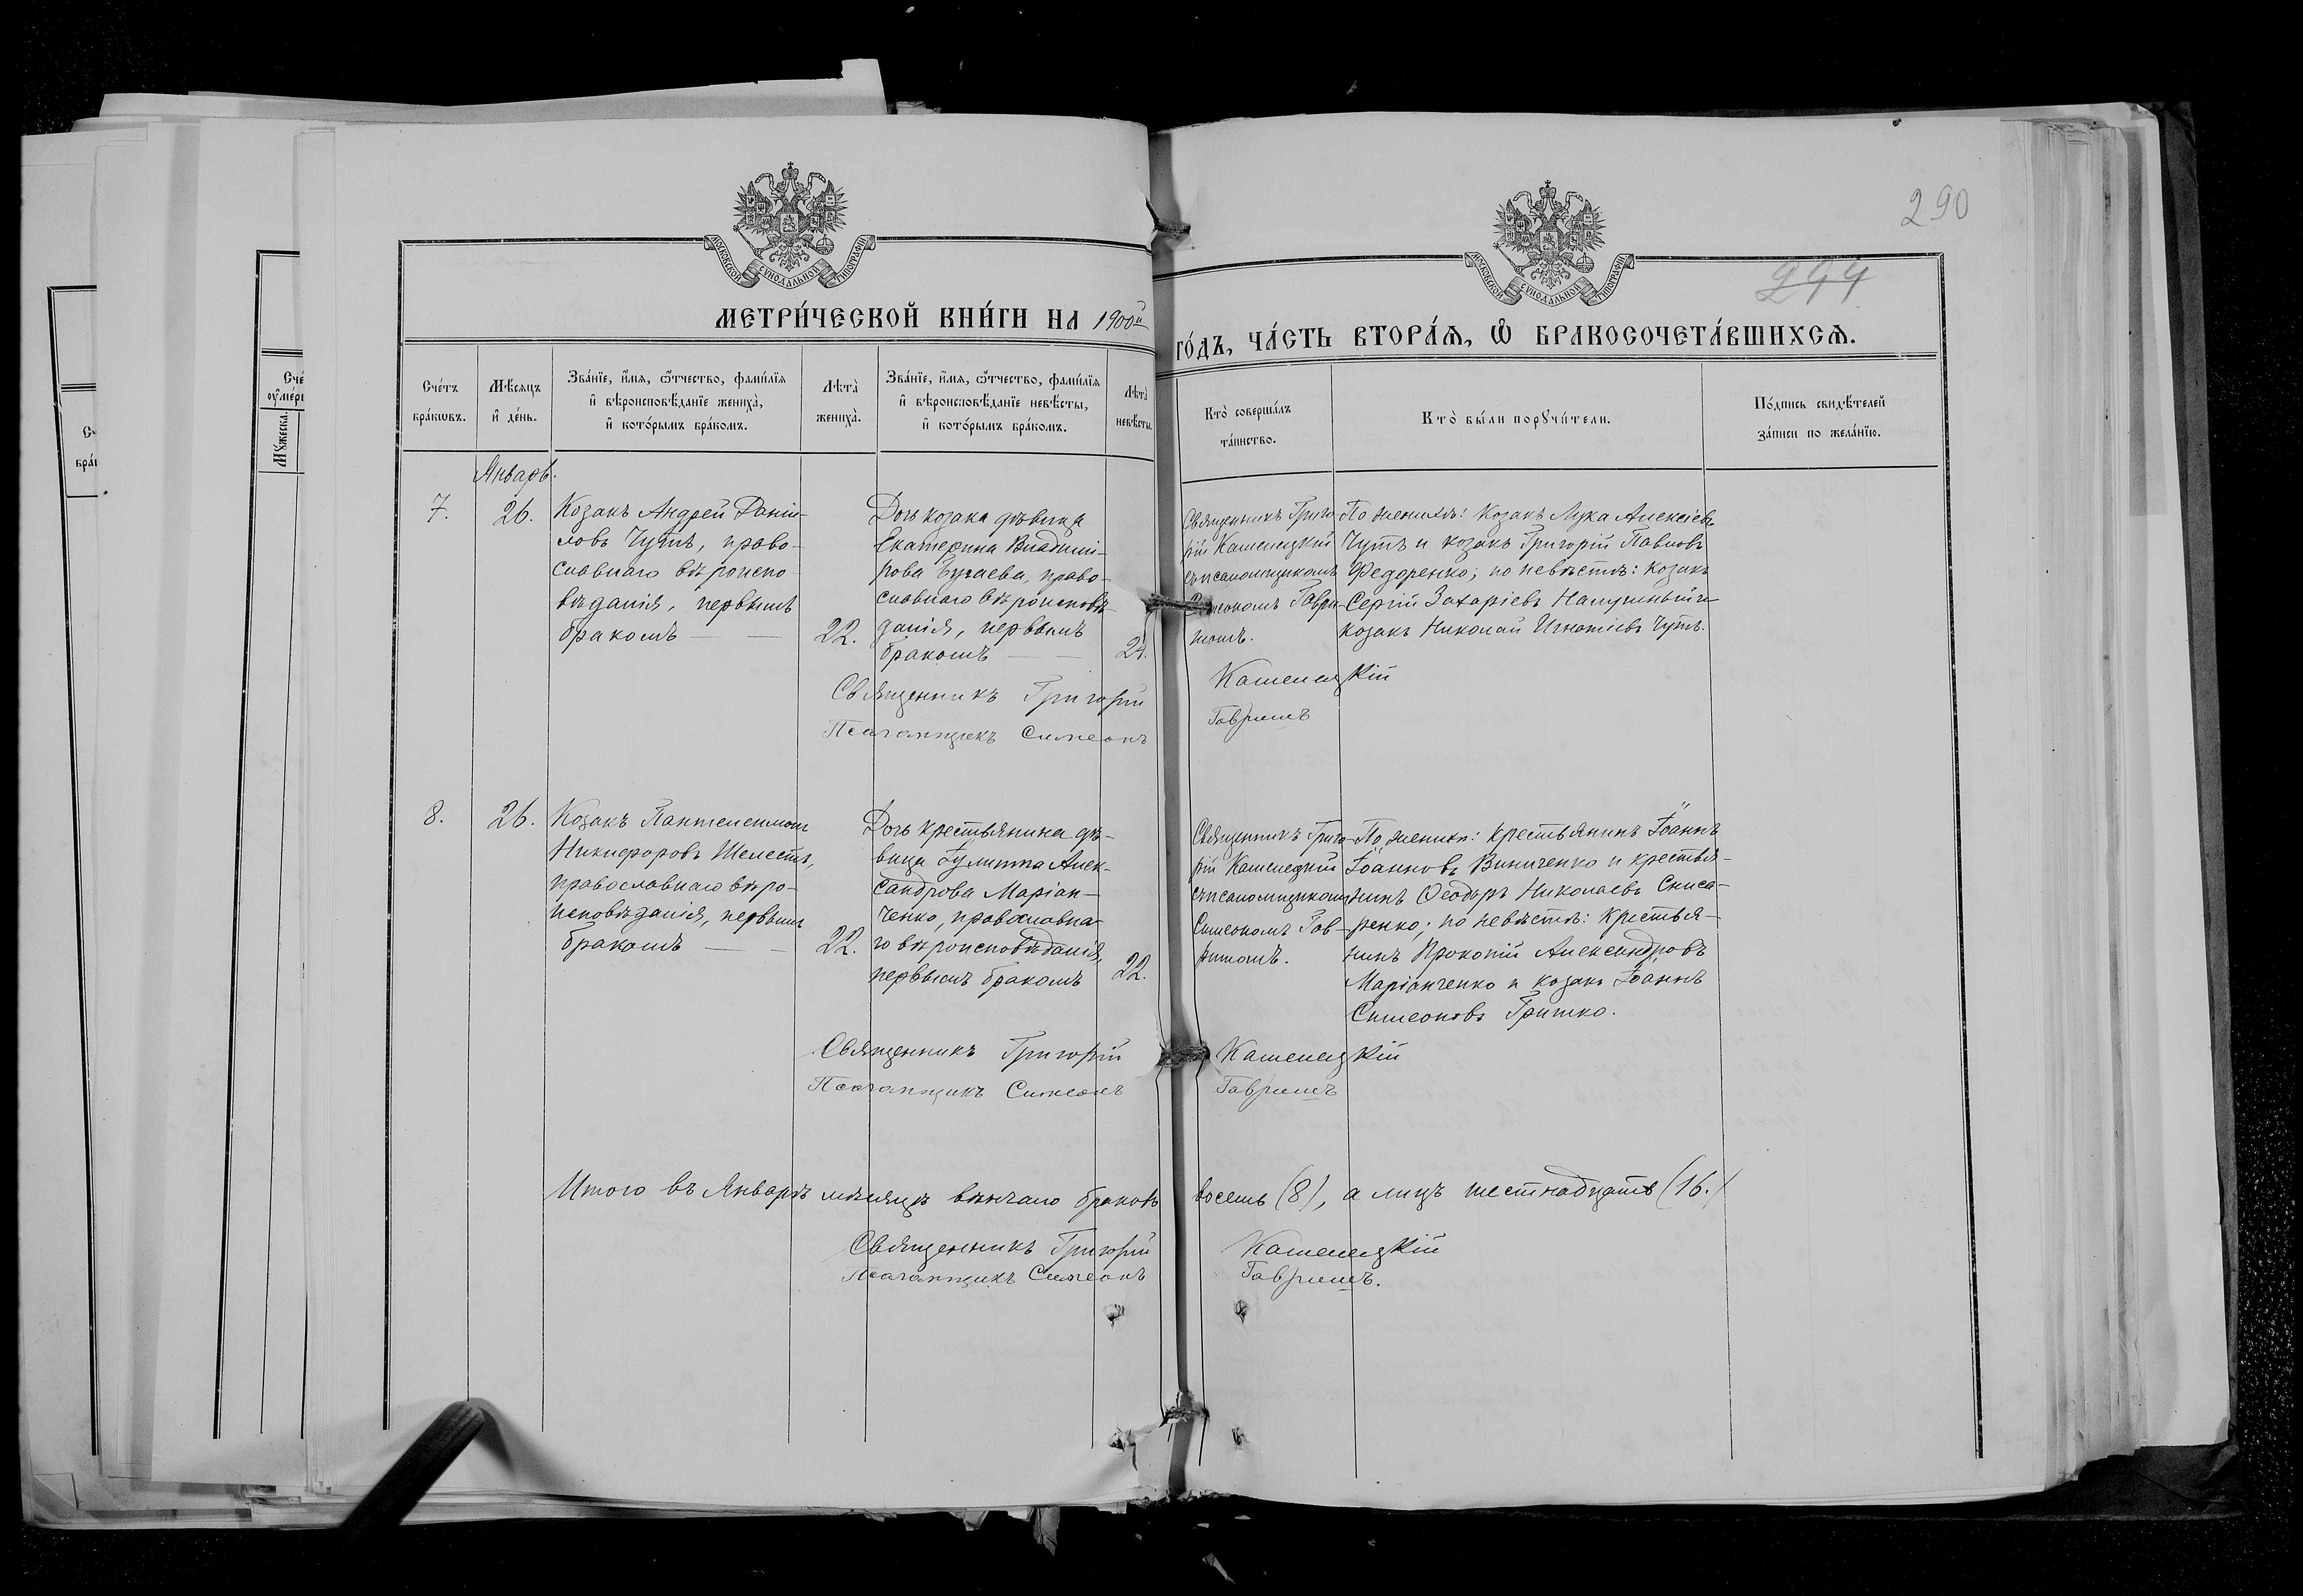 290
244
МОСКОВСКОЙ СУНОДАЛЬНОЙ ТИПОГРАФІИ
МОСКОВСКОЙ СУНОДАЛЬНОЙ ТИПОГРАФІИ
МЕТРИ́ЧЕСКОЙ КНИ́ГИ НА 1900й
ГО́ДЪ, ЧА́СТЬ ВТОРА́Ѧ, Ѡ БРАКОСОЧЕТА́ВШИХСѦ.
Сче́тъ бра́ковъ.
Мѣ́сяцъ и де́нь.
Зва́нїе, и҆́мѧ, ѻ҆́тчество, фами́лїѧ и҆ вѣроисповѣ́данїе жениха̀, и҆ кото́рымъ бра́комъ.
Лѣ́та жениха̀.
Зва́нїе, и҆́мѧ, ѻ҆́тчество, фами́лїѧ и҆ вѣроисповѣ́данїе невѣ́сты, и҆ кото́рымъ бра́комъ.
Лѣ́та невѣ́сты.
Кто̀ соверша́лъ та́инство.
Кто̀ бы́ли порꙋчи́тели.
По́дпись свидѣ́телей за́писи по жела́нїю.
Январь.
7.
26.
Козакъ Андрей Даніи-
ловъ Чутъ, право-
славнаго вѣроиспо-
вѣданія, первымъ
бракомъ
22.
Дочь козака дѣвица
Екатерина Владимі-
рова Бугаева, право-
славнаго вѣроисповѣ-
данія, первымъ
бракомъ
21.
Священникъ Григо
рій Каменецкій
съ псаломщикомъ
Симеономъ Гаври-
шомъ.
По женихѣ: козакъ Лука Алексіевъ
Чутъ и козакъ Григорій Павловъ
Федоренко; по невѣстѣ: козакъ
Сергій Захаріевъ и
козакъ Николай Игнатіевъ Чутъ.
Священникъ Григорій Каменецкій
Псаломщикъ Симеонъ Гавришъ
8.
26.
Козакъ Пантелеимонъ
Никифоровъ Шелестъ,
православнаго вѣро-
исповѣданія, первымъ
бракомъ
22.
Дочь крестьянина дѣ-
вица Іулитта Алек-
сандрова Маріан-
ченко, православна-
го вѣроисповѣданія,
первымъ бракомъ
22.
Священникъ Григо-
рій Каменецкій
съ псаломщикомъ
Симеономъ Гав-
ришомъ.
По женихѣ: крестьянинъ Іоаннъ
Іоанновъ Виниченко и крестья-
нинъ Ѳеодоръ Николаевъ Скиса-
ренко; по невѣстѣ: крестья-
нинъ Прокопій Александровъ
Маріанченко и козакъ Іоаннъ
Симеоновъ Гришко.
Священникъ Григорій Каменецкій
Псаломщикъ Симеонъ Гавришъ
Итого въ Январѣ мѣсяцѣ вѣнчано браковъ восемь (8), а лицъ шестнадцать (16.)
Священникъ Григорій Каменецкій
Псаломщикъ Симеонъ Гавришъ.